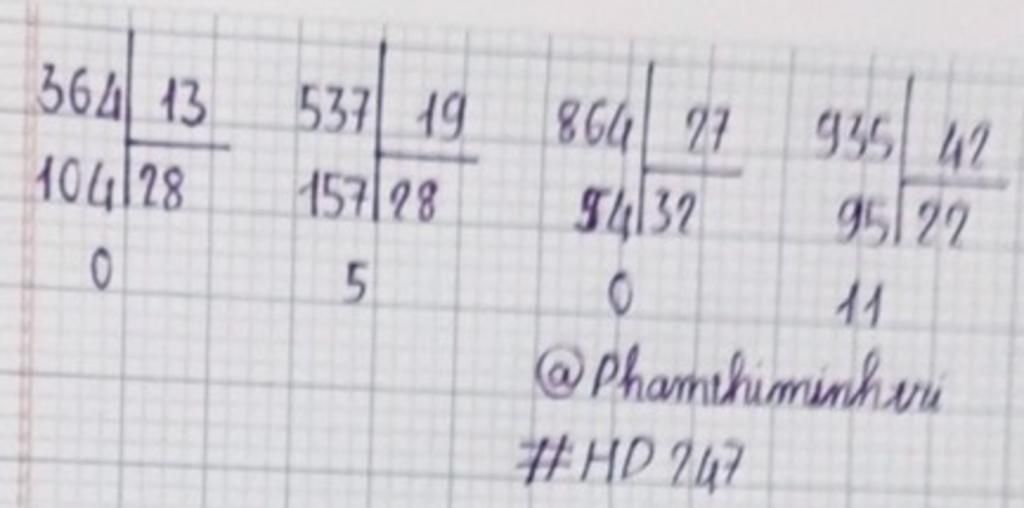 364 13 537 19 864 27 935 42
104 28 157 28 54 32 95 22
0 5 0 11
@Phamthiminhvii
#HD 247